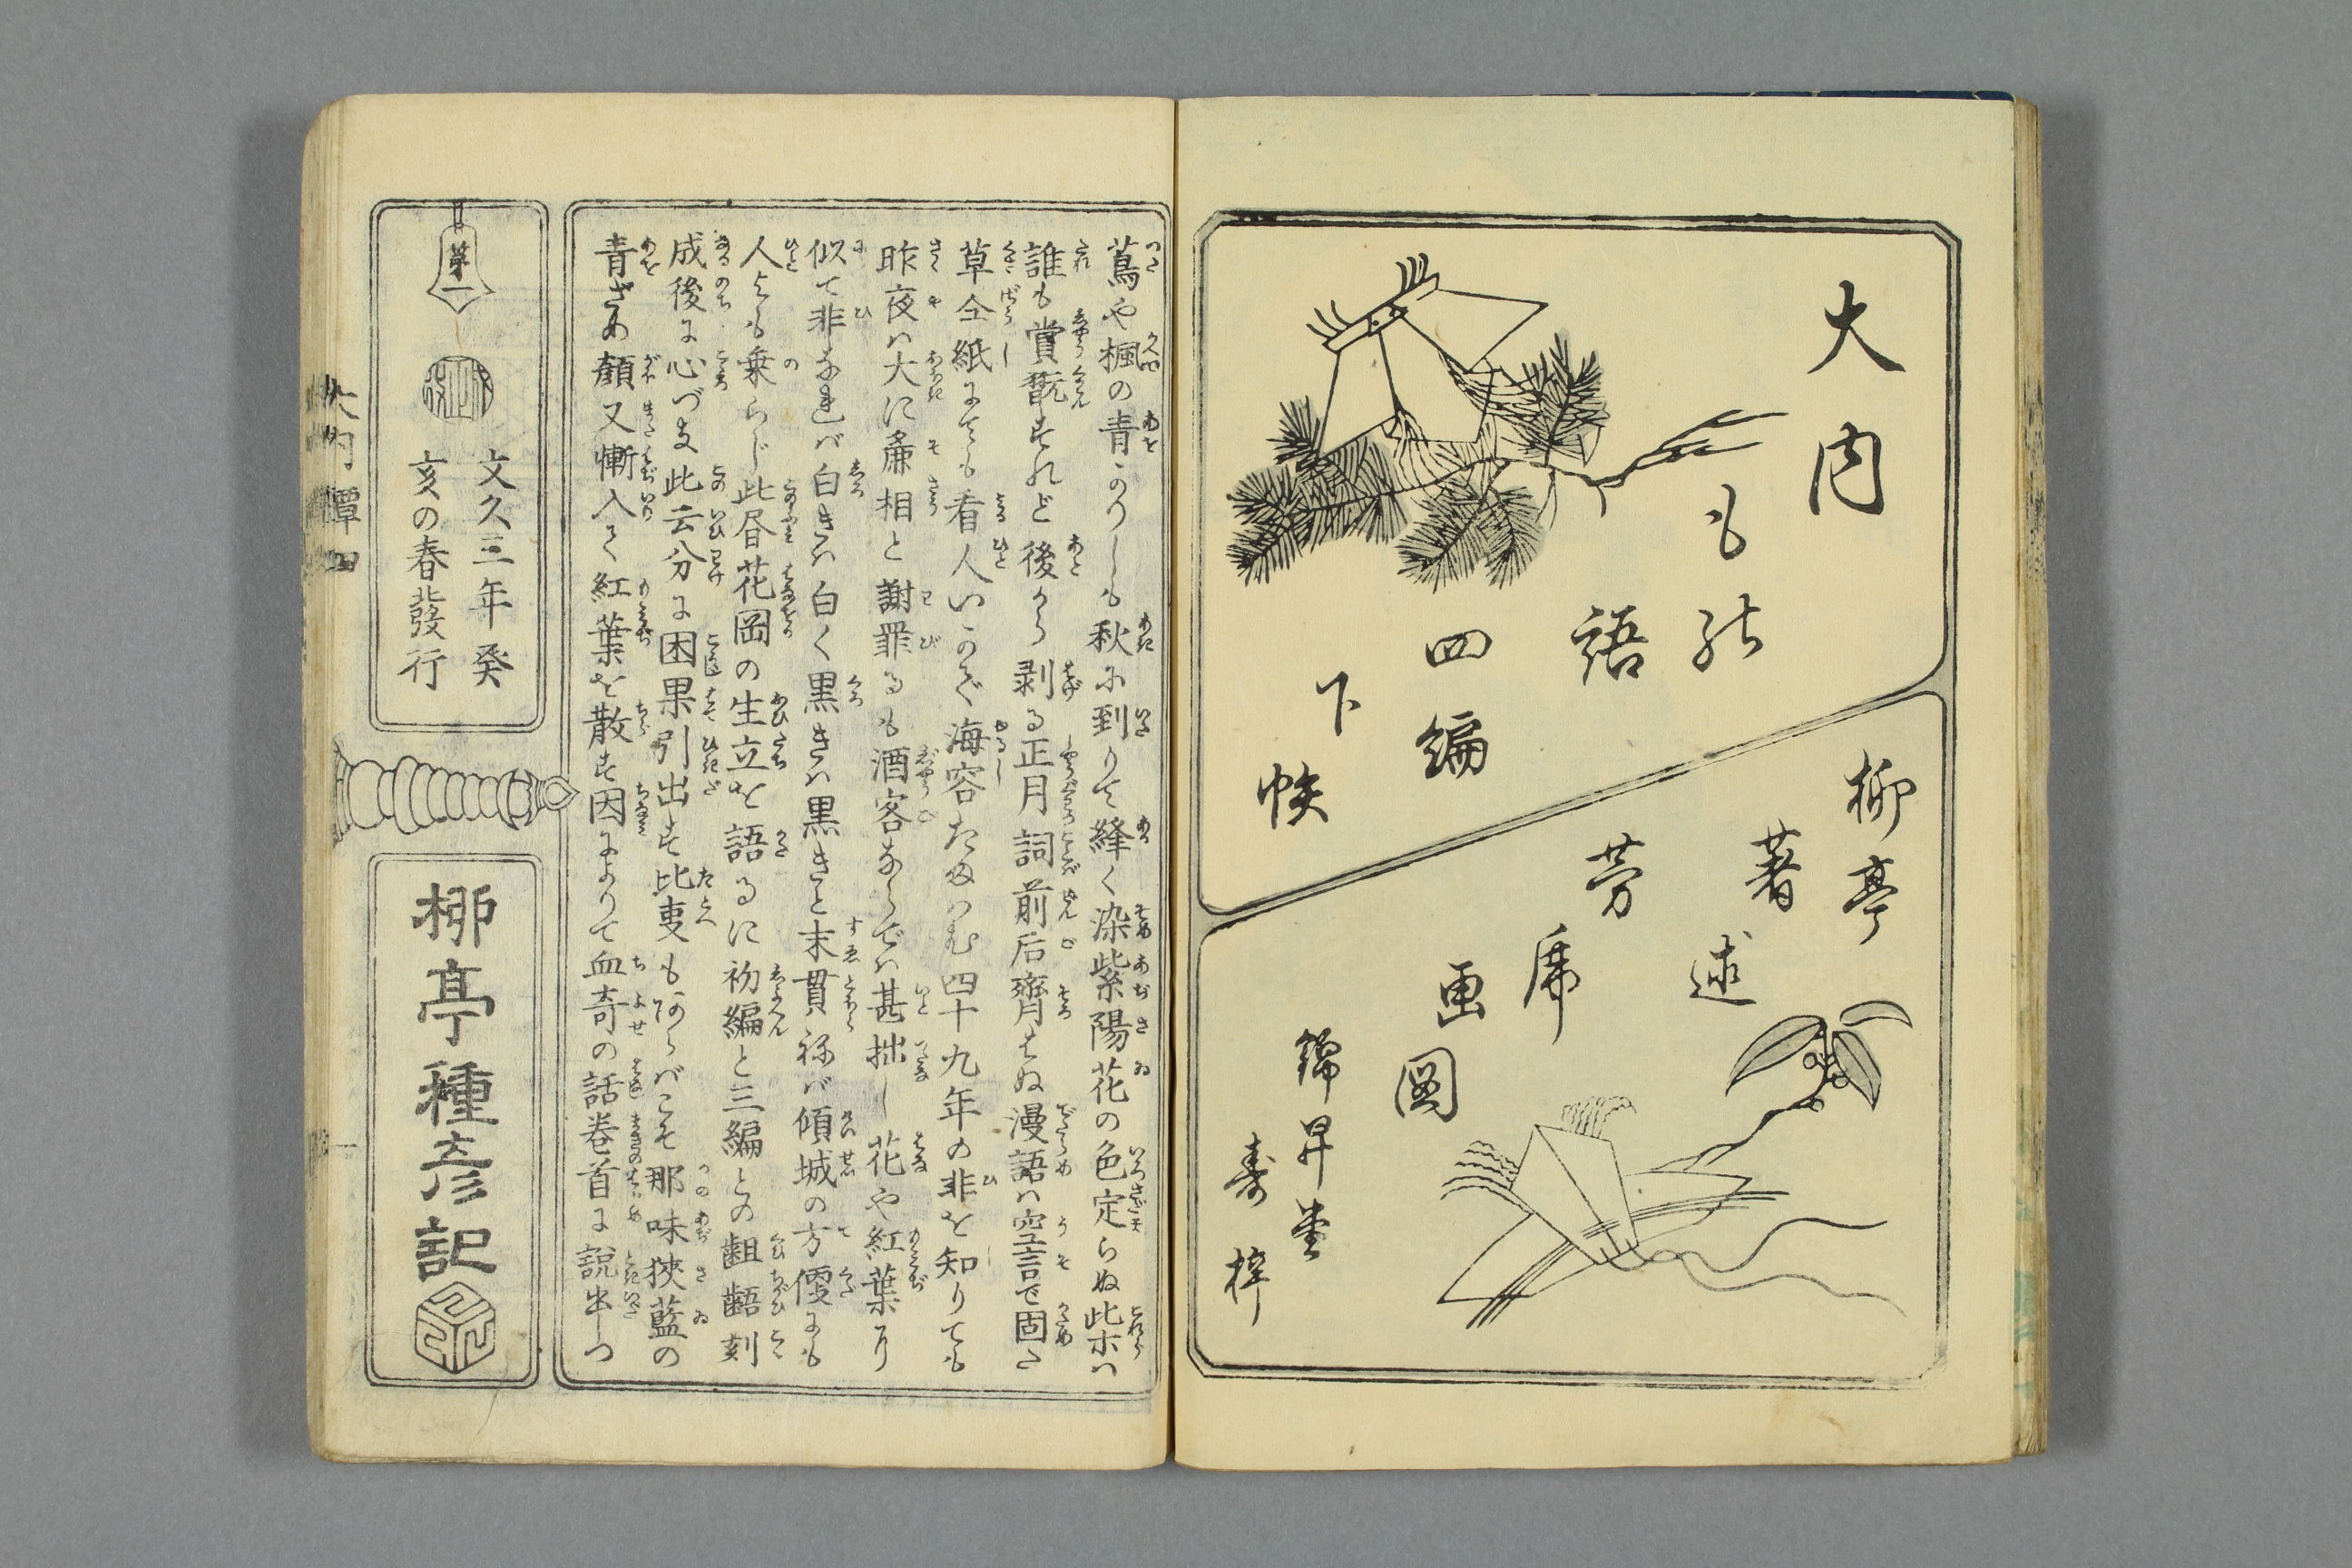 大内
も能
語
四編
下帙
柳亭
著述
芳虎
画圖
錦昇堂
壽梓
蔦や楓の青かりしも秋に到りて絳く染紫陽花の色定らぬ此ホハ
誰も賞翫すれど後から剥る正月詞前后齊はぬ漫語ハ空言で固た
草仝紙にても看人いかで海容たまハむ四十九年の非を知りても
昨夜ハ大に麁相と謝罪るも酒客ならでハ甚拙し花や紅葉り
似て非なれバ白きハ白く黒きハ黒きと末貫ねバ傾城の方便にも
人よも乗らじ此昼花岡の生立を語るに初編と三編との齟齬刻
成後に心づき此云分に困果引出す比喩もあらバこそ那味狹藍の
青ざめ顔又慚入て紅葉を散す因によりて血奇の話巻首に説出しつ
第一
文久三年癸
亥の春發行
柳亭種彦記
大内譚四